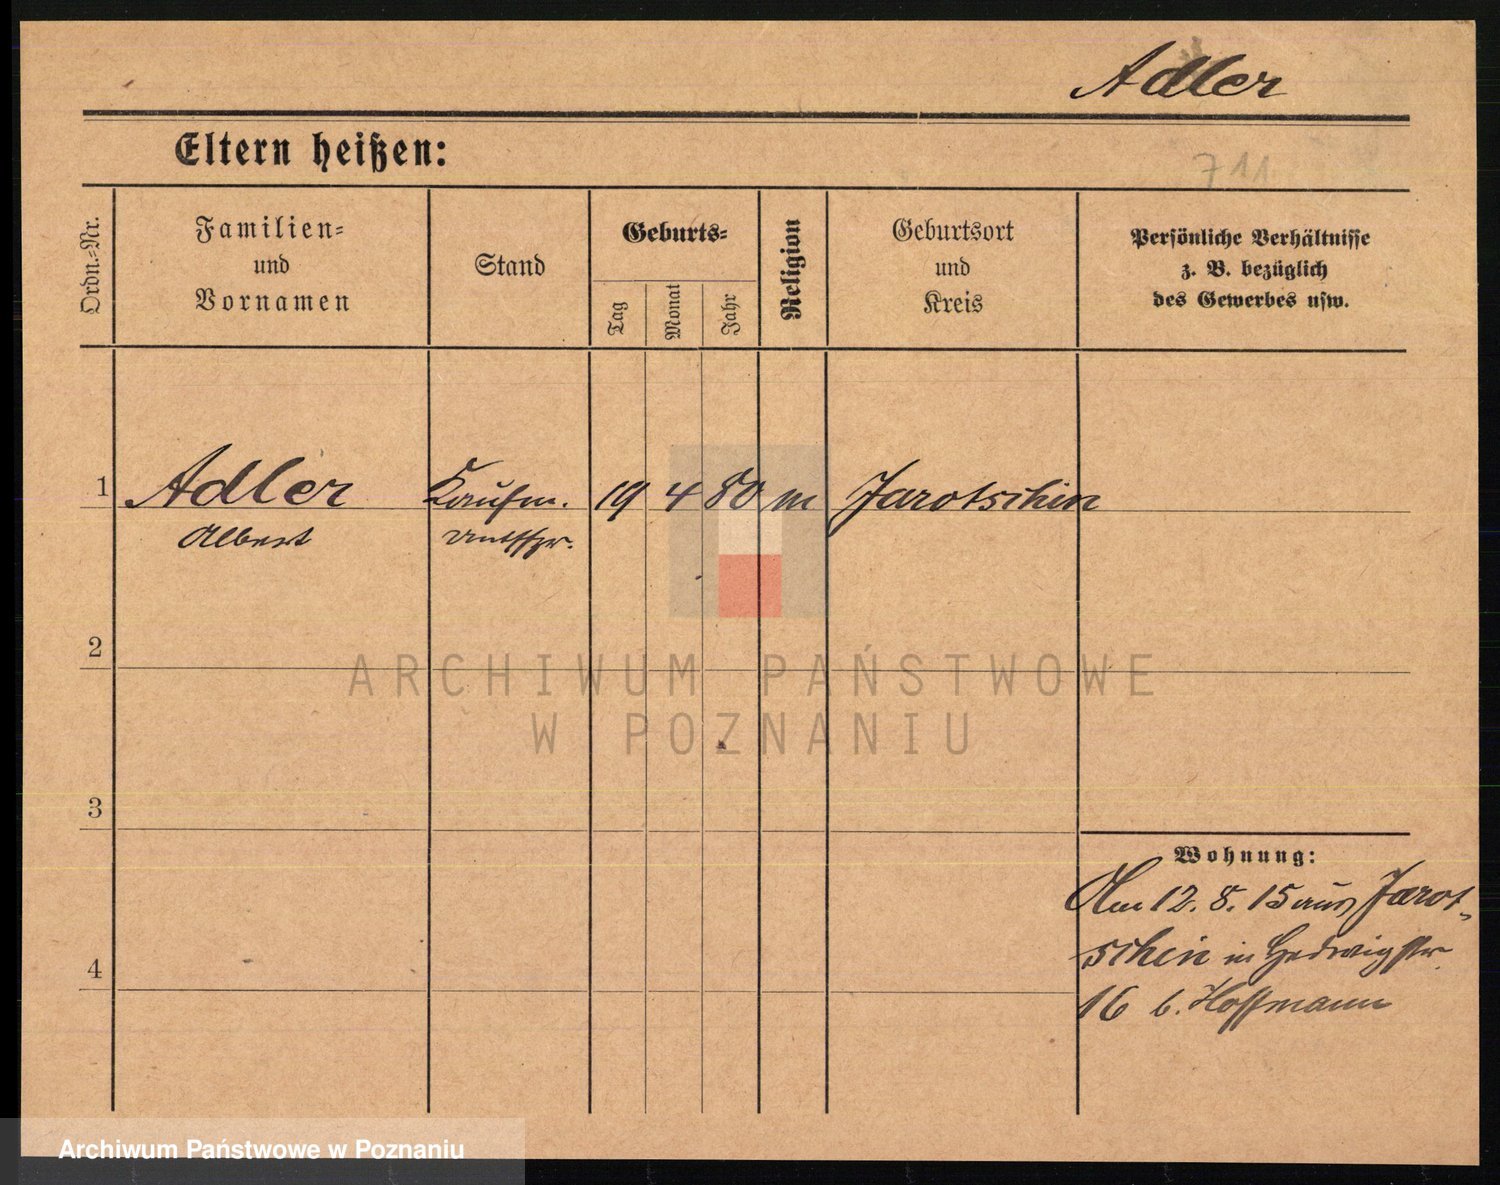 Adler
Eltern heißen:
711
Ordn.-Nr.
Familien-
und
Vornamen
Stand
Geburts-
Tag
Monat
Jahr
Religion
Geburtsort
und
Kreis
Persönliche Verhältnisse
z. B. bezüglich
des Gewerbes usw.
1 Adler Kaufm. 19 4 80 m Jarotschin
Albert
2
ARCHIWUM PAŃSTWOWE
W POZNANIU
3
Wohnung:
Am 12. 8. 15 aus Jarot-
schin in Hedwigstr.
4
16 b. Hoffmann
Archiwum Państwowe w Poznaniu